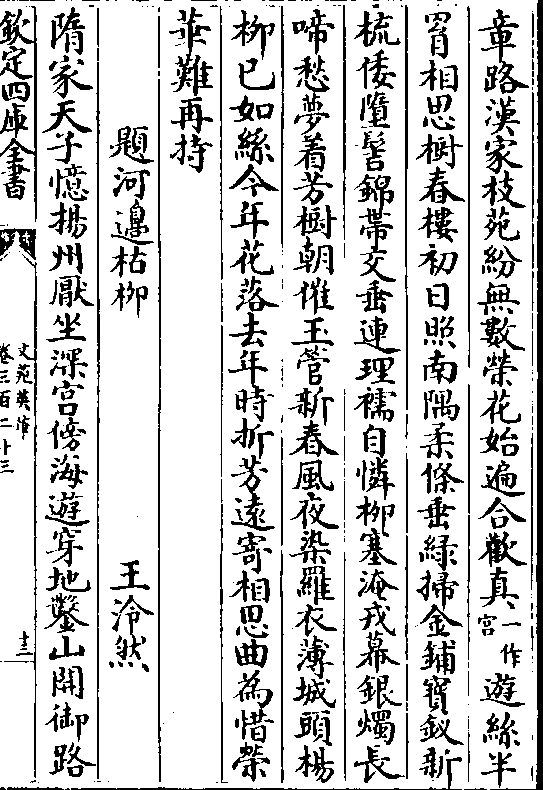 章路漢家枝苑紛無數榮花始遍合歡真一作宫遊絲半
罥相思樹春樓初日照南隅柔條垂緑掃金鋪寳釵新
梳倭墮髻錦帶交垂連理襦自憐柳塞淹戎幕銀燭長
啼愁夢着芳樹朝催玉管新春風夜染羅衣薄城頭楊
柳已如絲今年花落去年時折芳遠寄相思曲為惜榮
華難再持
題河邉枯柳 王泠然
隋家天子憶揚州厭坐深宫傍海遊穿地鑿山開御路
欽定四庫全書
文苑英華
卷三百二十三
十三